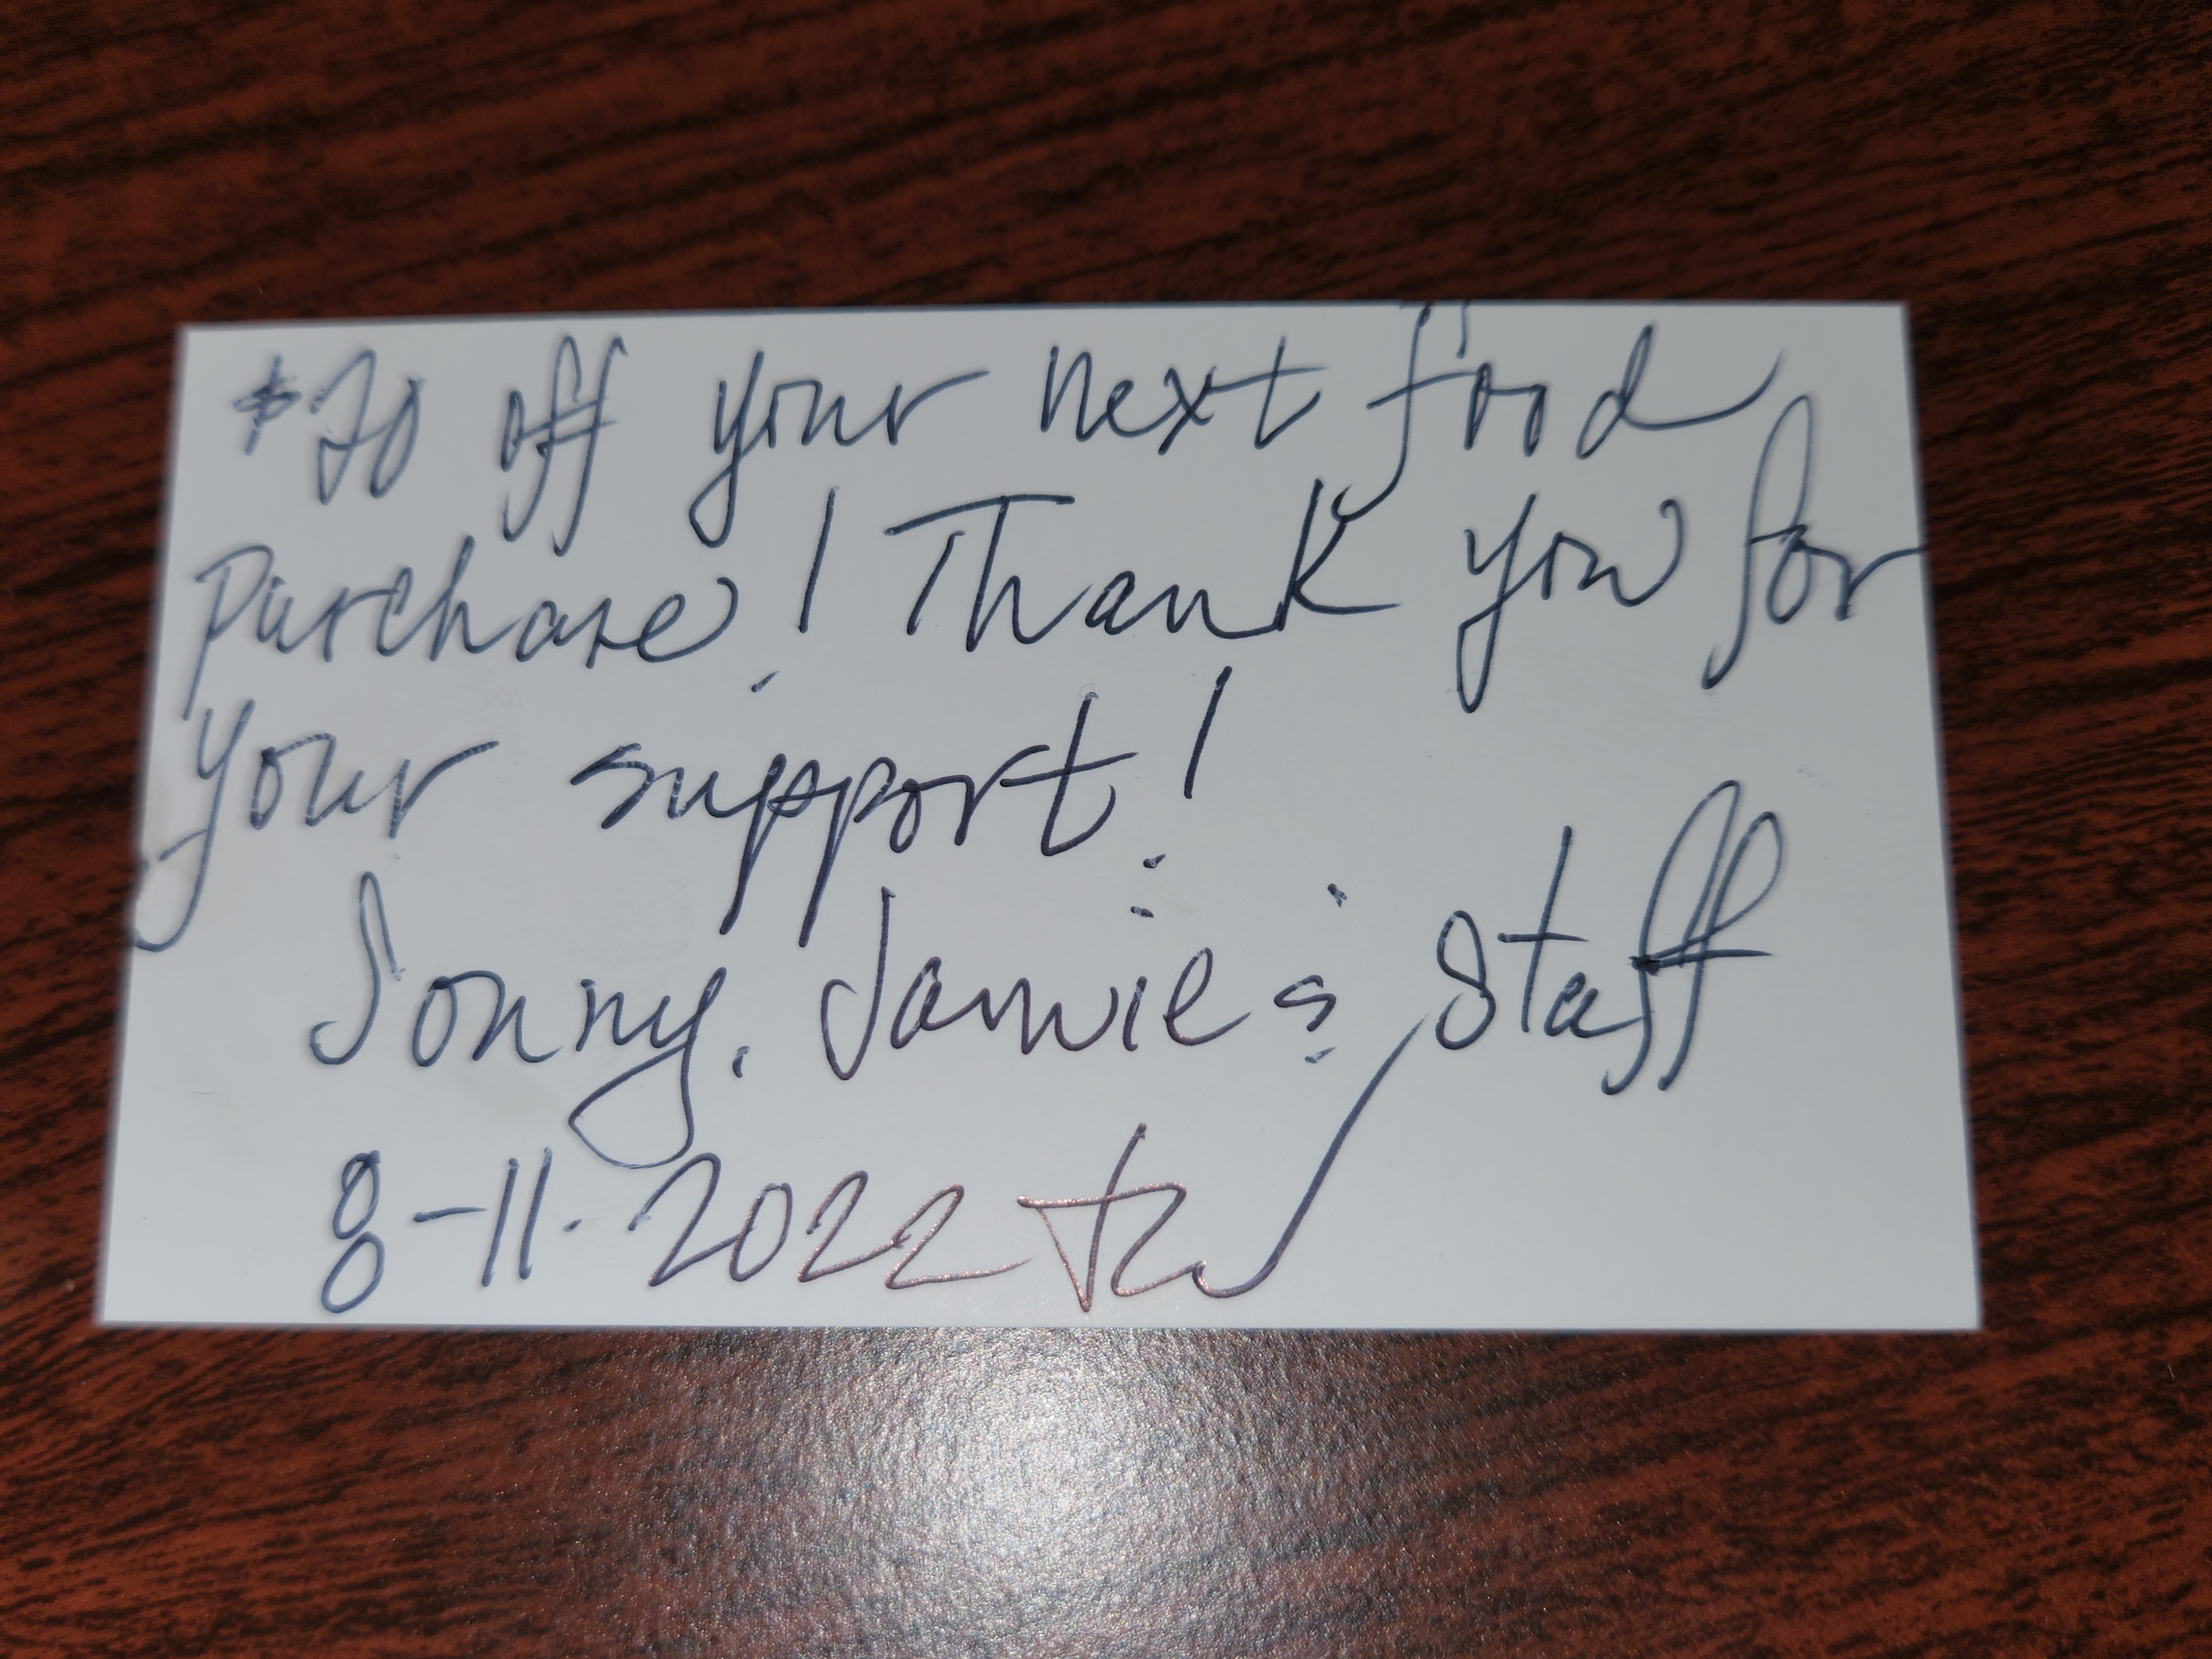 $20 off your next food
purchase! Thank you for
your support!
Sonny, Jamie & Staff
8-11-2022